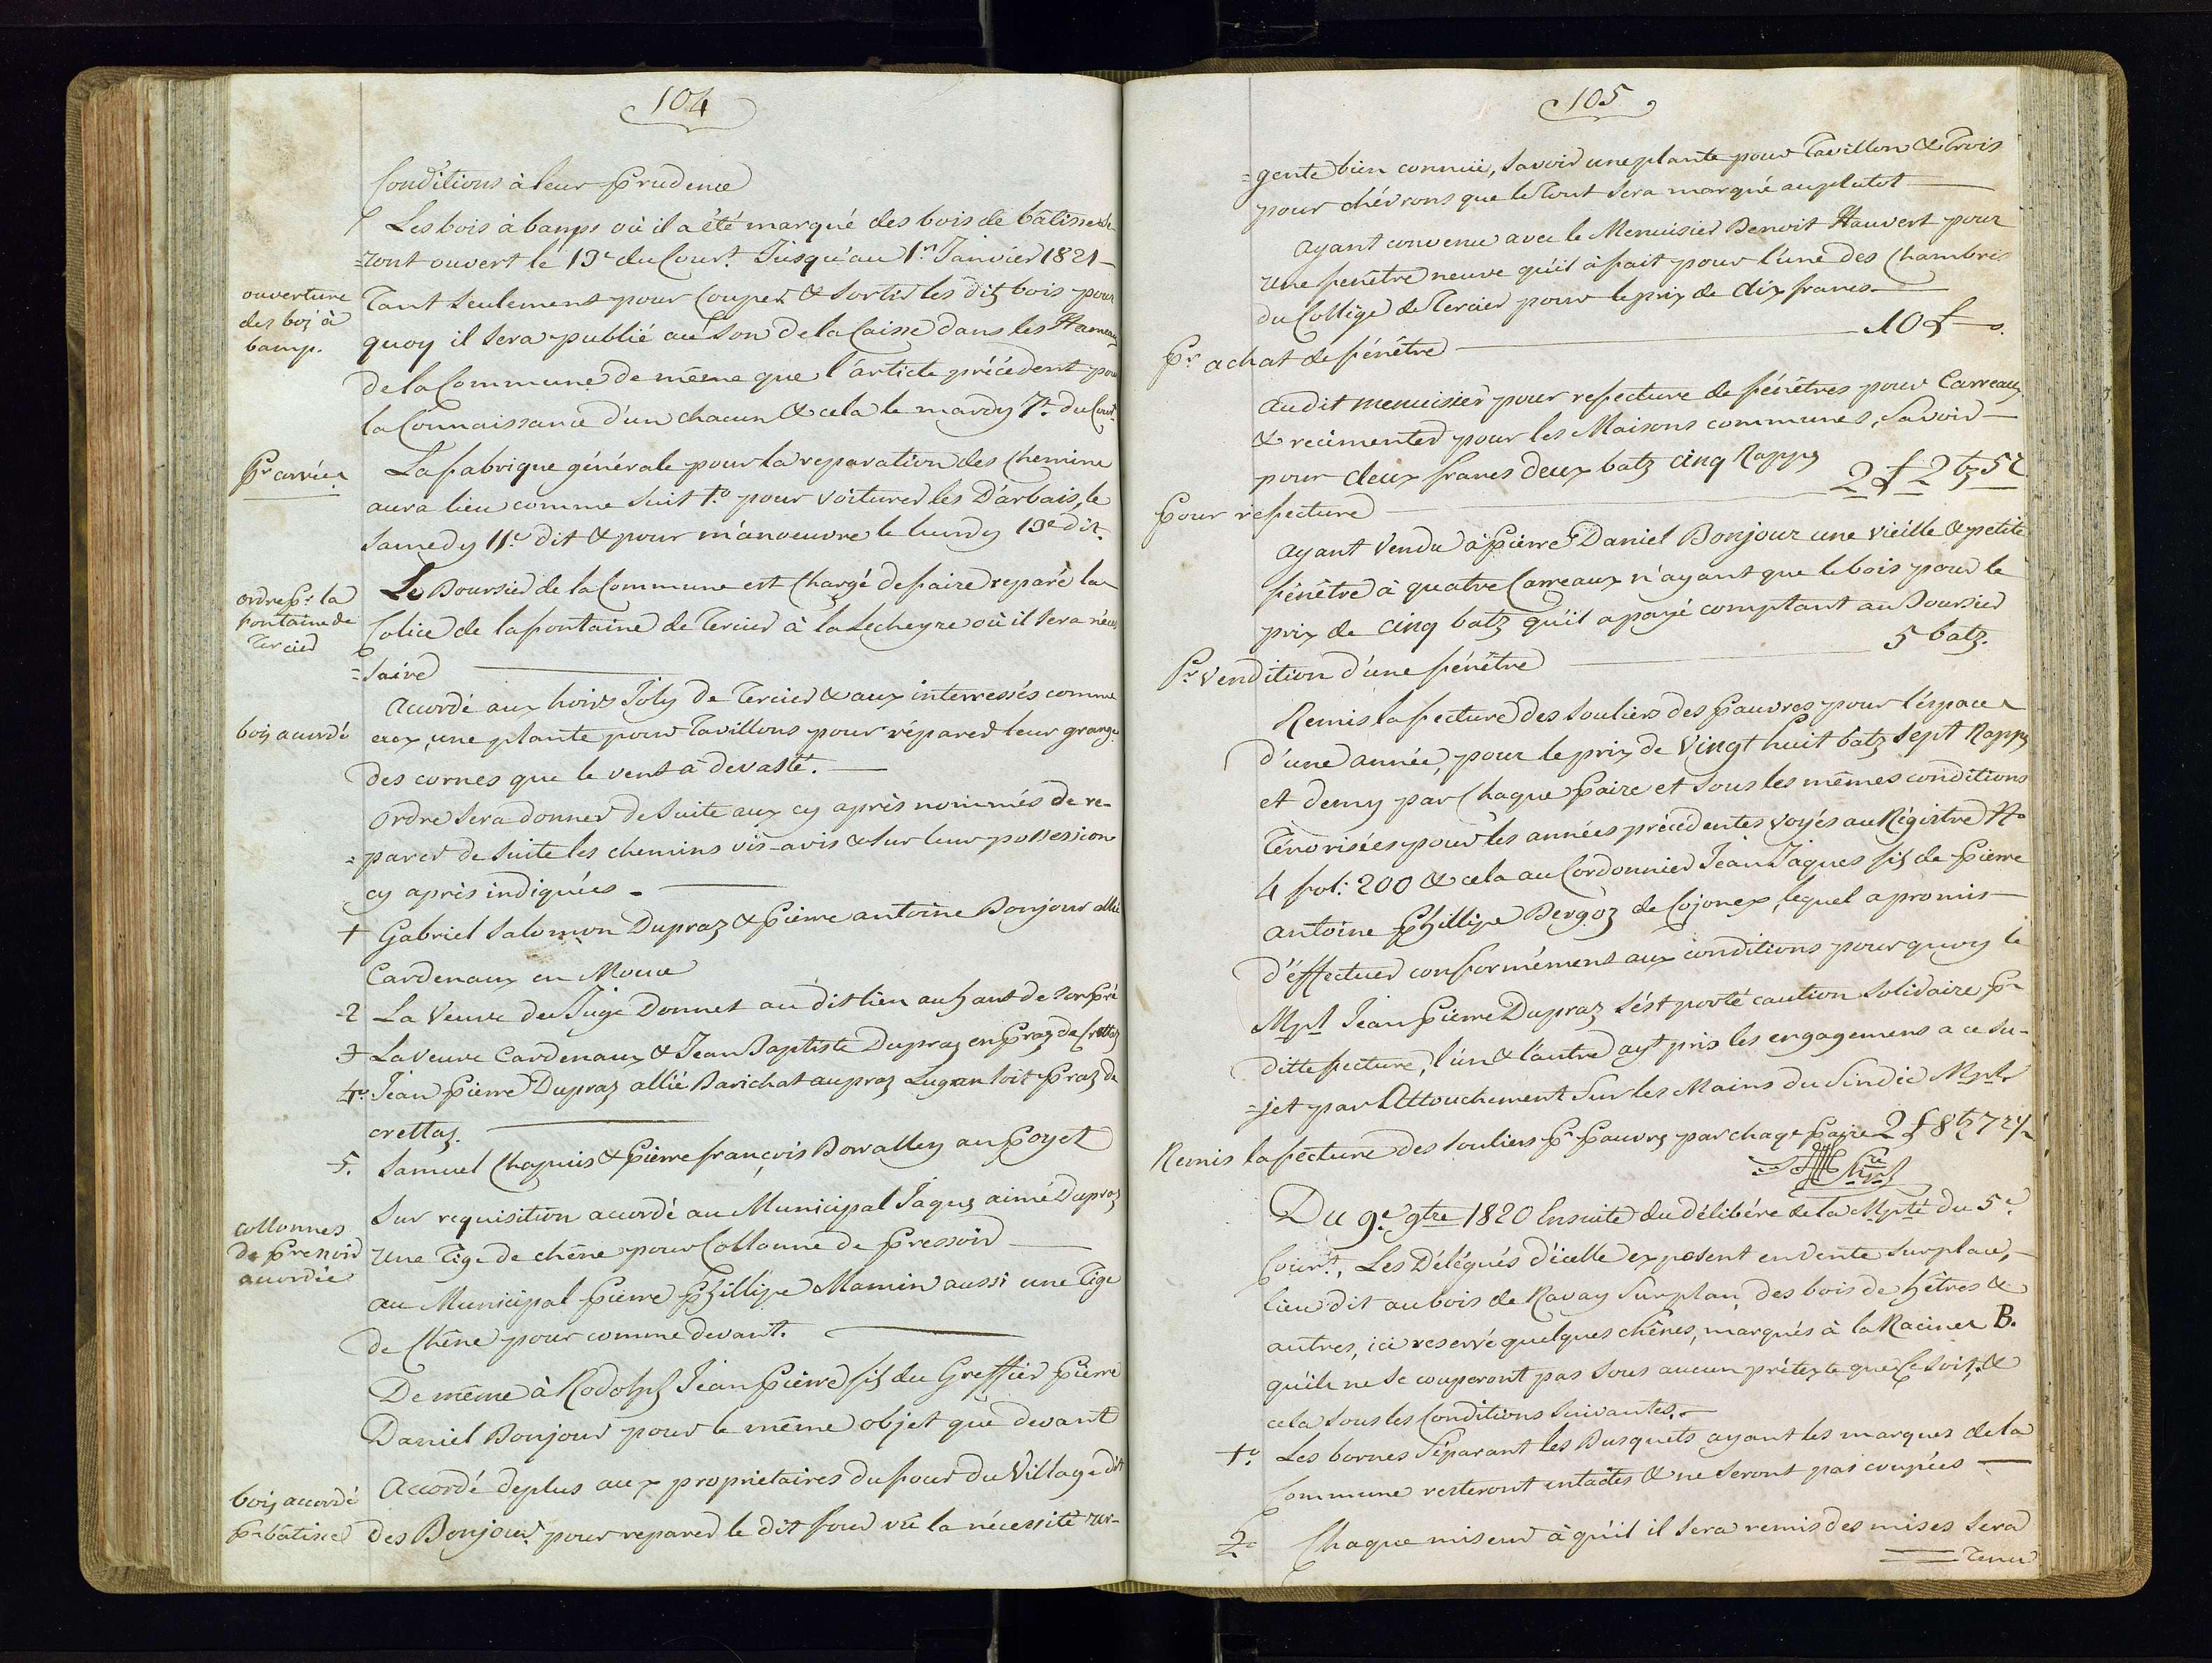 104
Conditions à leur Prudence
Les bois à bamps où il a été marqué des bois de bâtisse se-
=ront ouvert le 13e du Court. Jusqu'au 1r. Janvier 1821 -
ouverture
des bois à
bamp.
Tant seulement pour Couper & sortir les dits bois pour
quoy il sera publié au son de la Caisse dans les Hameaux
de la Commune de même que l'article précédent pour
la Connaissance d'un chacun & cela le mardy 7e. du Court.
Pr corvées
La fabrique générale pour la reparation des Chemins
aura lieu comme suit 1o. pour voiturer les D'arbais, le
Samedy 11e. dit & pour manoeuvre le lundy 13e dit.
ordre Pr. la
fontaine de
Tercier
Le Boursier de la Commune est Chargé de faire reparé la
Colice de la fontaine de Tercier à la Lecheyre où il sera néces
=saire
bois accordé
Accordé aux hoirs Joly de Tercier & aux interressés comme
eux, une plante pour Tavillons pour réparer leur grange
des cornes que le vent à devasté.
Ordre sera donner de suite aux cy après nommés de re-
=parer de suite les chemins vis-avis & sur leur possession
cy après indiquées -
1 Gabriel Salomon Dupraz & Pierre antoine Bonjour allié
Cardenaux en Moue
2 La Veuve du Juge Donnet au dit lieu au haut de son Pré
3 La veuve Cardenaux & Jean Baptiste Dupraz en Praz de Crettaz
4o. Jean Pierre Dupraz allié Barichat au praz Lugran soit Praz de
crettaz.
5. Samuel Chapuis & Pierre françois Dovvalley au Poyet
collonnes
de Pressoir
accordée
Sur requisition accordé au Municipal Jaques aimé Dupraz
une Tige de chêne pour Collonne de Pressoir
au Municipal Pierre Phillipe Mamin aussi une Tige
de Chêne pour comme devant.
De même à Rodolph Jean Pierre fils du Greffier Pierre
Daniel Bonjour pour le même objet que devant
bois accordé
Pr bâtisse
Accordé deplus aux proprietaires du four du Village dit
des Bonjour pour reparer le dit four vû la nécessité ur-
105
=gente bien connuë, savoir une plante pour Tavillon & Trois
pour chévrons que le Tout sera marqué au plutot
ayant convenu avec le Menuisier Benoit Hauvert pour
une fenêtre neuve qu'il à fait pour l'une des Chambres
du Collège de Tercier pour le prix de dix francs.
Pr achat de fénêtre 10 f - o.
audit menuisier pour refecture de fénêtres pour Carreaux
& recimenter pour les Maisons communes, savoir
pour deux francs deux batz cinq Rappes
Pour refecture 2 f 2 bz 5 r
ayant vendu à Pierre Daniel Bonjour une vieille & petite
fénêtre à quatre Carreaux n'ayant que le bois pour le
prix de cinq batz qu'il a payé comptant au Boursier
Pr Vendition d'une fénêtre 5 batz.
Remis la fecture des souliers des Pauvres pour l'espace
d'une année, pour le prix de Vingt huit batz sept Rappes
et demy par Chaque Paire et sous les mêmes conditions
Ténorisées pour les années précédentes voyés au Régistre No
4 fol: 200 & cela au Cordonnier Jean Jaques fils de Pierre
antoine Phillipe Bergoz de Cojonex, lequel a promis
d'éffectuer conformément aux conditions pourquoy le
Mpl Jean Pierre Dupraz s'ést porté caution solidaire Pr
ditte fecture, l'un & l'autre ayt pris les engagemens a ce su-
=jet par Attouchement sur les Mains du Sindic Mpl.
Remis la fecture des souliers Pr Pauvres par chaqe Paire 2 f 8 bz 7 r ½
Du 9e. 9bre 1820 Ensuite du délibéré de la Mpté du 5e.
Court. Les Délégués d'icelle exposent en vente sur place,
lieu dit au bois de Ravay sur plan, des bois de hêtres &
autres, ici reservé quelques chênes, marqués à la Racine B.
qu'ils ne se couperont pas sous aucun prétexte que Ce soit, &
cela sous les Conditions suivantes.
1o. Les bornes séparant les Busquets ayant les marques de la
Commune resteront entactes & ne seront pas coupées
2o Chaque miseur à qu'il il sera remis des mises sera
= Tenu